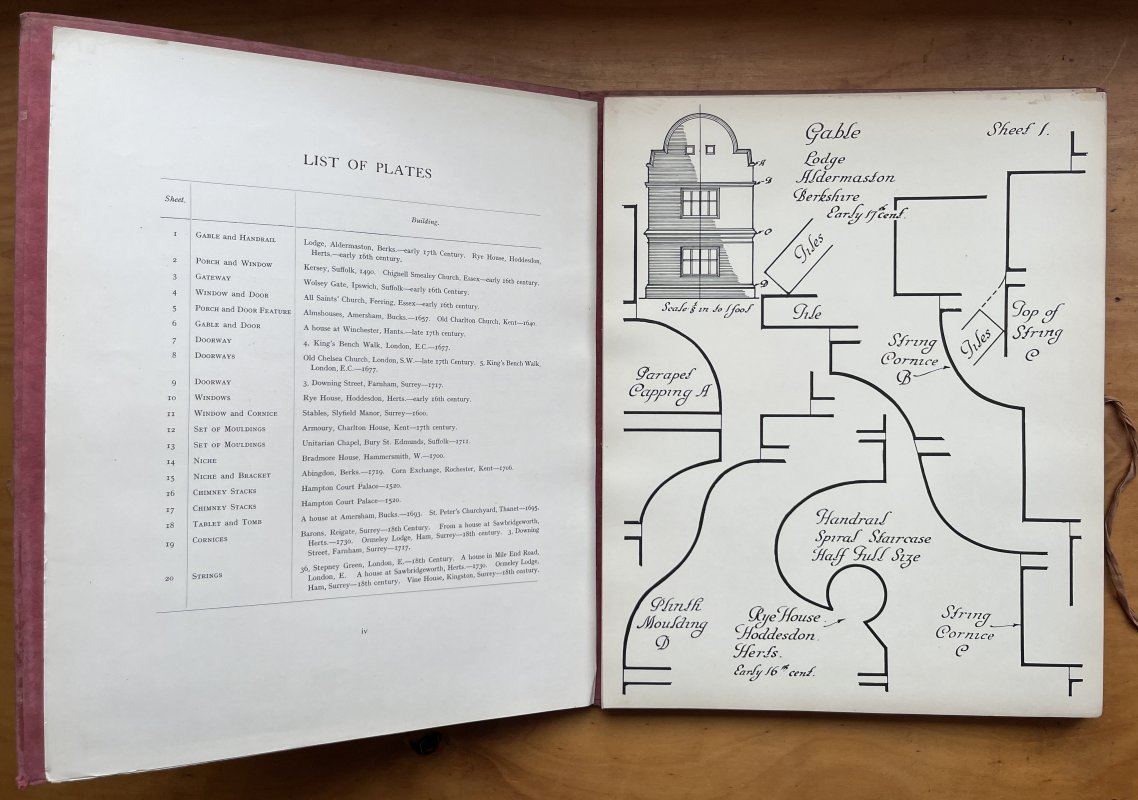 LIST OF PLATES
Sheet.
Building.
1 GABLE and HANDRAIL Lodge, Aldermaston, Berks.—early 17th Century. Rye House, Hoddesdon,
Herts.—early 16th century.
2 PORCH and WINDOW Kersey, Suffolk, 1490. Chignell Smealey Church, Essex—early 16th century.
3 GATEWAY Wolsey Gate, Ipswich, Suffolk—early 16th Century.
4 WINDOW and DOOR All Saints' Church, Feering, Essex—early 16th century.
5 PORCH and DOOR FEATURE Almshouses, Amersham, Bucks.—1657. Old Charlton Church, Kent—1640.
6 GABLE and DOOR A house at Winchester, Hants.—late 17th century.
7 DOORWAY 4, King's Bench Walk, London, E.C.—1677.
8 DOORWAYS Old Chelsea Church, London, S.W.—late 17th Century. 5, King's Bench Walk,
London, E.C.—1677.
9 DOORWAY 3, Downing Street, Farnham, Surrey—1717.
10 WINDOWS Rye House, Hoddesdon, Herts.—early 16th century.
11 WINDOW and CORNICE Stables, Slyfield Manor, Surrey—1600.
12 SET OF MOULDINGS Armoury, Charlton House, Kent—17th century.
13 SET OF MOULDINGS Unitarian Chapel, Bury St. Edmunds, Suffolk—1711.
14 NICHE Bradmore House, Hammersmith, W.—1700.
15 NICHE and BRACKET Abingdon, Berks.—1719. Corn Exchange, Rochester, Kent—1706.
16 CHIMNEY STACKS Hampton Court Palace—1520.
17 CHIMNEY STACKS Hampton Court Palace—1520.
18 TABLET and TOMB A house at Amersham, Bucks.—1693. St. Peter's Churchyard, Thanet—1695.
19 CORNICES Barons, Reigate, Surrey—18th Century. From a house at Sawbridgeworth,
Herts.—1730. Ormeley Lodge, Ham, Surrey—18th century. 3, Downing
Street, Farnham, Surrey—1717.
20 STRINGS 36, Stepney Green, London, E.—18th Century. A house in Mile End Road,
London, E. A house at Sawbridgeworth, Herts.—1730. Ormeley Lodge,
Ham, Surrey—18th century. Vine House, Kingston, Surrey—18th century.
iv
Gable
Sheet 1.
Lodge
Aldermaston
Berkshire
Early 17th cent.
A
B
C
D
Tiles
Tile
Tiles
Top of
String
C
String
Cornice
B
Parapet
Capping A
Handrail
Spiral Staircase
Half Full Size
Plinth
Moulding
D
Rye House
Hoddesdon.
Herts.
Early 16th cent.
String
Cornice
C